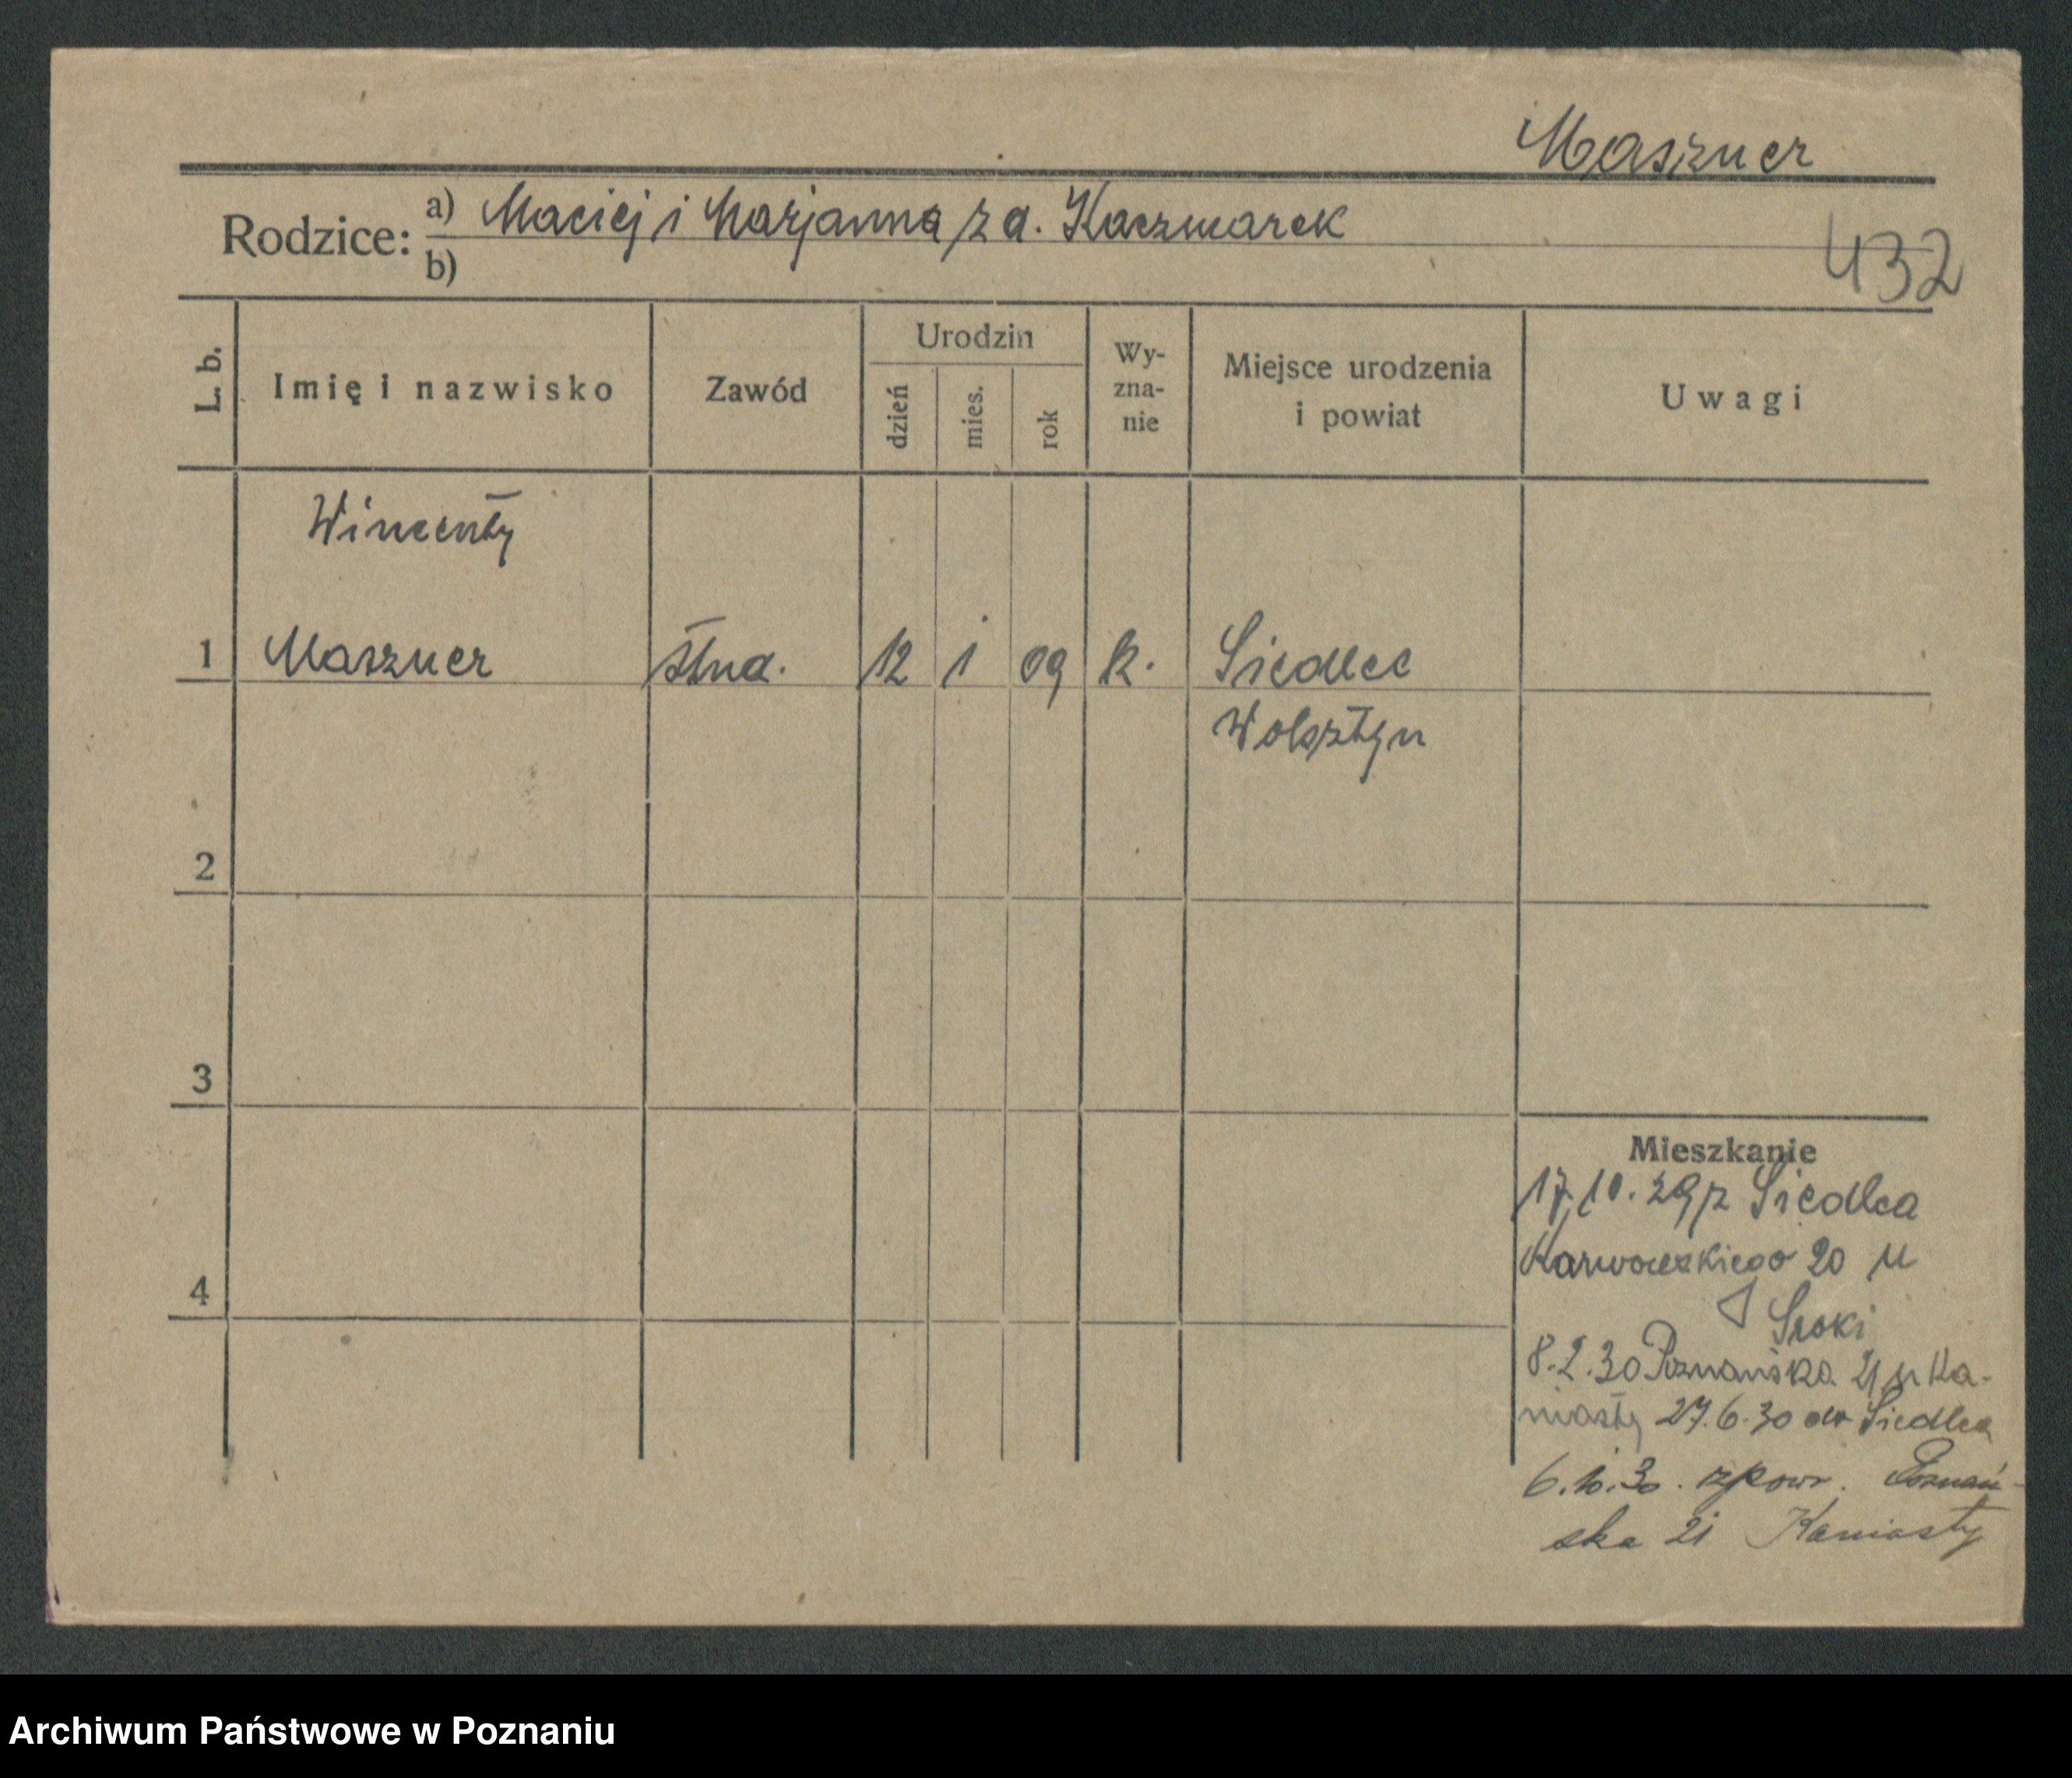 Maszner
Rodzice: a) Maciej i Marjanna z d. Kaczmarek
b)
432
L. b.
Imię i nazwisko
Zawód
Urodzin
dzień
mies.
rok
Wy-
zna-
nie
Miejsce urodzenia
i powiat
Uwagi
Wincenty
1 Maszner stud. 12 1 09 k. Siedlec
Wolsztyn
2
3
4
Mieszkanie
17.10.29 z Siedlca
Karwowskiego 20 u
8.2.30 Poznańska 21 u Ka-
niasty 27.6.30 do Siedlca
6.10.30. zpowr. Poznań-
ska 21 Kaniasty
Archiwum Państwowe w Poznaniu